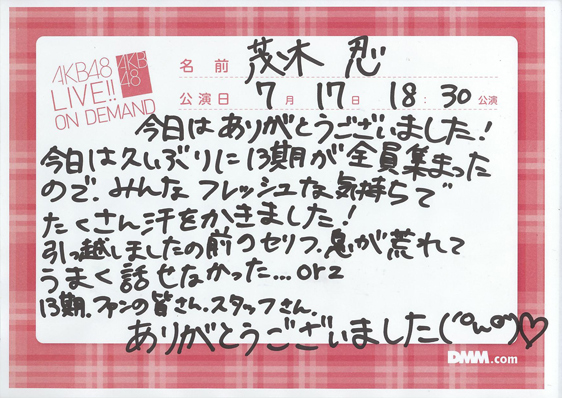 AKB48
LIVE!!
ON DEMAND
AKB
48
名前 茂木 忍
公演日 7月 17日 18:30 公演
今日はありがとうございました!
今日は久しぶりに13期が全員集まった
ので、みんなフレッシュな気持ちで
たくさん汗をかきました!
引っ越しましたの前のセリフ、息が荒れて
うまく話せなかった...orz
13期、ファンの皆さん、スタッフさん、
ありがとうございました(´ºωº`)♡
DMM.com